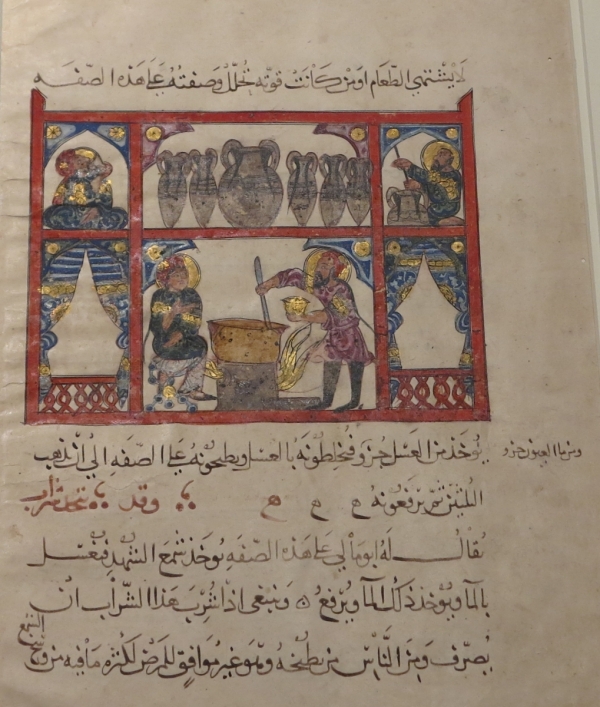 لا يشتهي الطعام او من كانت قوته تحلل وصفته على هذه الصفه
يوخذ من العسل جزو فيخلطونه بالعسل ويطبخونه على الصفه الي ان يذهب
ومن ماا العيون جزو
الثلثين ثم يرفعونه ه ه ه ه وقد يتخذ شراب
يقال له ابومالي على هذه الصفه يوخذ شمع الشهد فيغسل
بالما ويوخذ ذلك الما ويرفع وينبغي اذا شرب هذا الشراب ان
يصرف ومن الناس من يطبخه وهو غير موافق للمرضي لكثره ما فيه من وسخ
الشمع